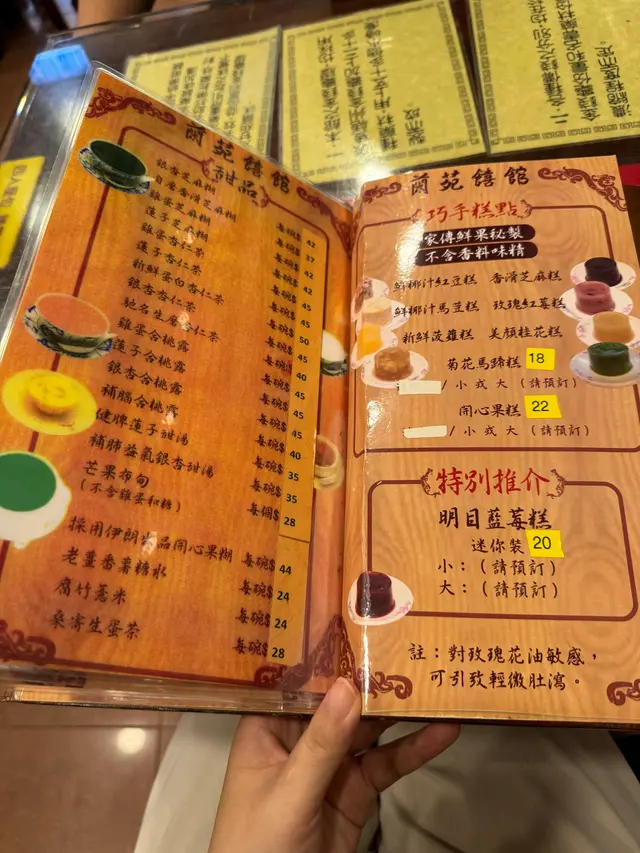 蘭苑饎館
甜品
銀杏芝麻糊 每碗$ 42
自磨香滑芝麻糊 每碗$ 37
雞蛋芝麻糊 每碗$ 42
蓮子芝麻糊 每碗$ 42
雞蛋杏仁茶 每碗$ 45
蓮子杏仁茶 每碗$ 45
新鮮蛋白杏仁茶 每碗$ 50
銀杏杏仁茶 每碗$ 45
馳名生磨杏仁茶 每碗$ 40
雞蛋合桃露 每碗$ 45
蓮子合桃露 每碗$ 45
銀杏合桃露 每碗$ 45
補腦合桃露 每碗$ 40
健脾蓮子甜湯 每碗$ 35
補肺益氣銀杏甜湯 每碗$ 35
芒果布甸 每個$ 28
(不含雞蛋和糖)
採用伊朗出品開心果糊 每碗$ 44
老薑番薯糖水 每碗$ 24
腐竹薏米 每碗$ 24
桑寄生蛋茶 每碗$ 28
蘭苑饎館
巧手糕點
家傳鮮果秘製
不含香料味精
鮮椰汁紅豆糕 香滑芝麻糕
鮮椰汁馬荳糕 玫瑰紅莓糕
新鮮菠蘿糕 美顏桂花糕
菊花馬蹄糕 18
/ 小 或 大 (請預訂)
開心果糕 22
/ 小 或 大 (請預訂)
特別推介
明目藍莓糕
迷你裝 20
小：(請預訂)
大：(請預訂)
註：對玫瑰花油敏感，
可引致輕微肚瀉。